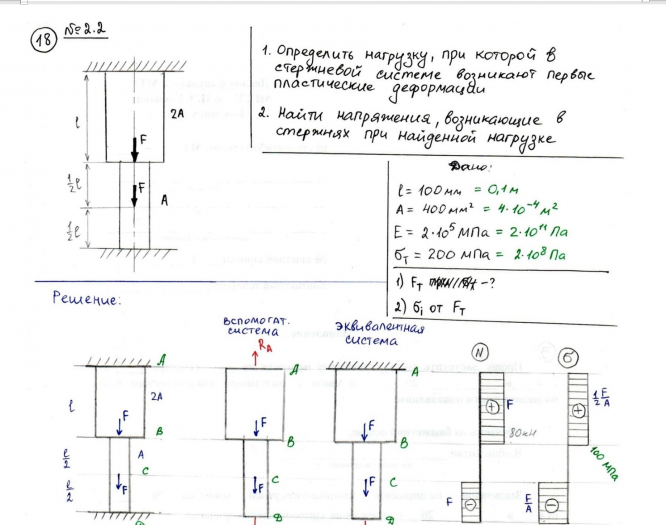 18
№ 2.2
1. Определить нагрузку, при которой в
стержневой системе возникают первые
пластические деформации
2. Найти напряжения, возникающие в
стержнях при найденной нагрузке
l
2A
F
1/2 l
F
A
1/2 l
Дано:
l = 100 мм = 0,1 м
A = 400 мм² = 4·10⁻⁴ м²
E = 2·10⁵ МПа = 2·10¹¹ Па
σт = 200 МПа = 2·10⁸ Па
1) Fт -?
2) σi от Fт
Решение:
вспомогат.
система
эквивалентная
система
N
σ
RA
A
A
A
l
2A
F
F
F
B
B
B
l/2
A
C
C
C
l/2
F
F
F
D
F
80 кН
1/2 F/A
100 МПа
F
F/A